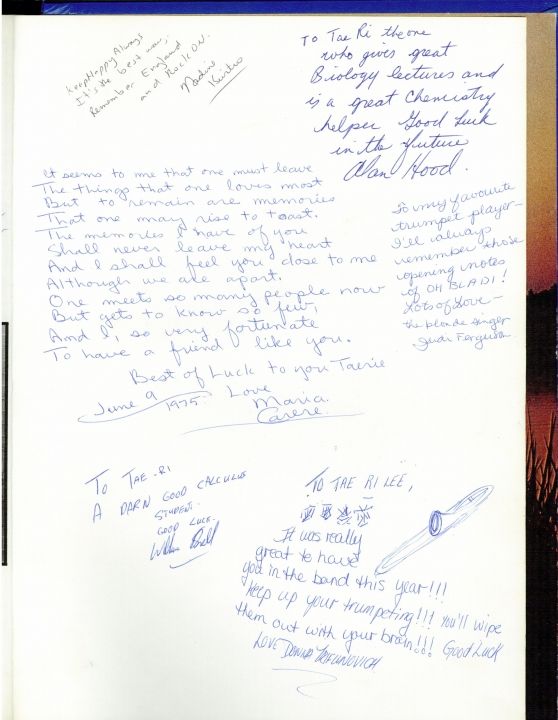 Keep Happy Always
It's the best way,
Remember England
and Rock On.
Nadine
Kurtis
To Tae Ri the one
who gives great
Biology lectures and
is a great Chemistry
helper Good Luck
in the future
Alan Hood.
It seems to me that one must leave
The things that one loves most
But to remain are memories
That one may rise to toast.
The memories I have of you
Shall never leave my heart
And I shall feel you close to me
Although we are apart.
One meets so many people now
But gets to know so few,
And I, so very fortunate
To have a friend like you.
Best of Luck to you Taerie
June 9 1975. Love
Maria
Carere.
To my favourite
trumpet player—
I'll always
remember those
opening notes
of OH BLADI!
Lots of Love—
the blonde singer
Judi Ferguson
To TAE-RI
A DARN GOOD CALCULUS
STUDENT.
GOOD LUCK.
TO TAE RI LEE,
It was really
great to have
you in the band this year!!!
Keep up your trumpeting!!! You'll wipe
them out with your brain!!! Good Luck
LOVE DONNA TRIFUNOVICH